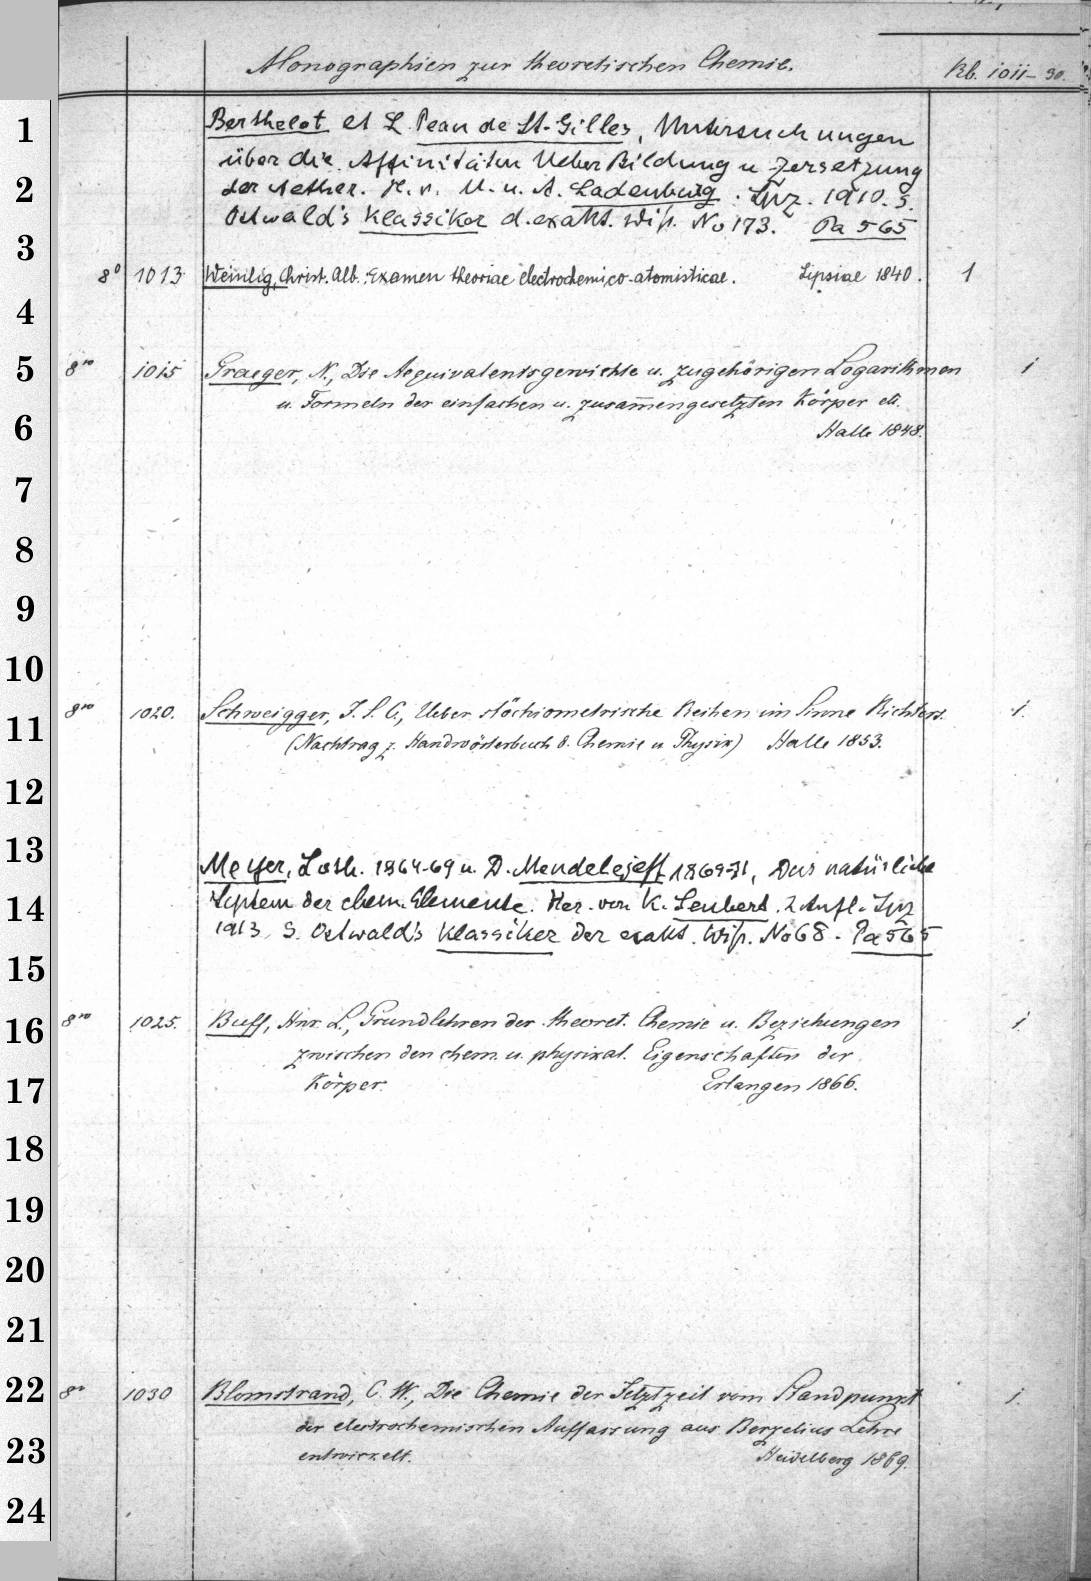 Monographien zur theoretischen Chemie. Kb. 1011-30.
Berthelot et L. Pean de St. Gilles, Untersuchungen
über die Affinitäten Ueber Bildung u Zersetzung
der Aether. H. v. M. u. A. Ladenburg. Lpz. 1910. s.
Ostwald's Klassiker d. exakt. Wiss. No 173. Pa 565
8° 1013 Weinlig, Christ. Alb.: Examen theoriae electrochemico-atomisticae. Lipsiae 1840. 1
8vo 1015 Graeger, N., Die Aequivalentsgewichte u. zugehörigen Logarithmen 1
u. Formeln der einfachen u. zusam̅engesetzten Körper etc.
Halle 1848.
8vo 1020. Schweigger, J. S. C., Ueber stöchiometrische Reihen im Sinne Richters. 1.
(Nachtrag z. Handwörterbuch d. Chemie u Physik) Halle 1853.
Meyer, Loth. 1864-69 u. D. Mendelejeff 1869-71, Das natürliche
System der chem. Elemente. Her. von K. Seubert. 2 Aufl. Lpz
1913 S. Ostwald's Klassiker der exakt. Wiss. No 68. Pa 565
8vo 1025. Buff, Hnr. L., Grundlehren der theoret. Chemie u. Beziehungen 1.
zwischen den chem. u. physikal. Eigenschaften der
Körper. Erlangen 1866.
8vo 1030 Blomstrand, C. W., Die Chemie der Jetztzeit vom Standpunkt 1.
der electrochemischen Auffassung aus Berzelius Lehre
entwickelt. Heidelberg 1869.
1
2
3
4
5
6
7
8
9
10
11
12
13
14
15
16
17
18
19
20
21
22
23
24